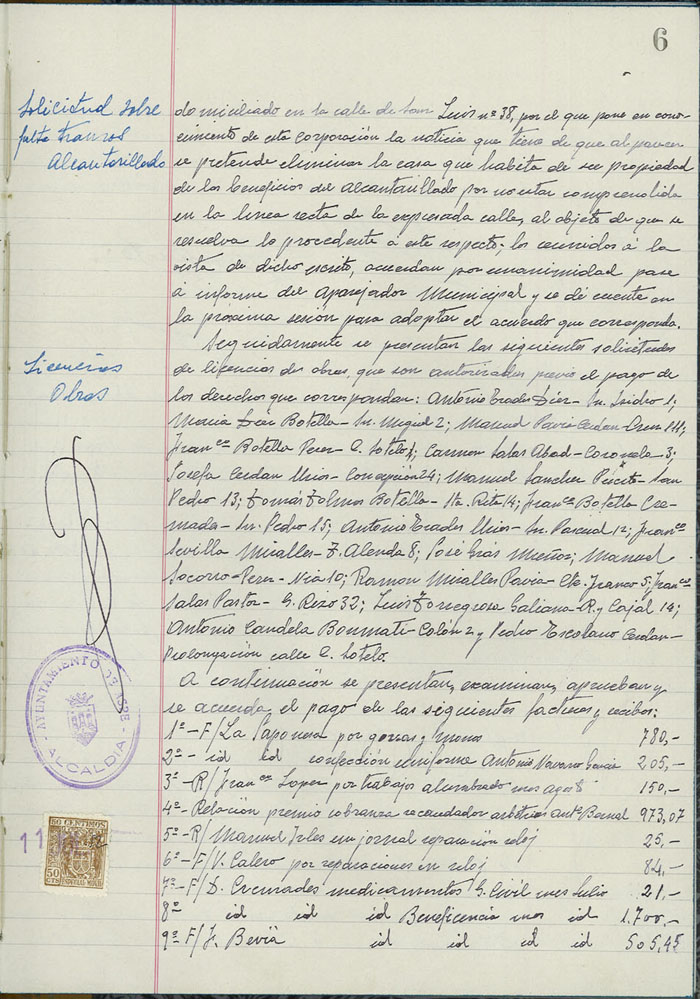 6
Solicitud sobre
falta tramos
Alcantarillado
domiciliado en la calle de San Luis nº 38, por el que pone en cono-
cimiento de esta Corporación la noticia que tiene de que al parecer
se pretende eliminar la casa que habita de su propiedad
de los beneficios del alcantarillado por no estar comprendida
en la linea recta de la expresada calle, al objeto de que se
resuelva lo procedente á este respecto; los reunidos á la
vista de dicho escrito, acuerdan por unanimidad pase
á informe del Aparejador Municipal y se dé cuenta en
la proxima sesión para adoptar el acuerdo que corresponda.
Licencias
Obras
Seguidamente se presentan las siguientes solicitudes
de licencias de obras, que son autorizadas previo el pago de
los derechos que correspondan: Antonio Erades Díez- Sn. Isidro 1;
Díez Botella- Sn. Miguel 2; Manuel Pavia Cerdan-
Franco Botella Perez- C. Sotelo 4; Carmen Salas Abad- Coronela- 3;
Josefa Cerdan Mira- Concepción 24; Manuel Sanchez - San
Pedro 13; Tomás Botella- Sta. Rita 14; Franco Botella Cre-
mades- Sn. Pedro 15; Antonio Erades Mira- Sn. Pascual 12; Franco
Sevilla Miralles- F. Alenda 8; José Grás Muñoz; Manuel
Socorro Perez- 10; Ramon Miralles Pavia- Cte. Franco 5; Franco
Salas Pastor- G. Rizo 32; Luis Torregrosa Galiana- R. y Cajal 14;
Antonio Candela Bonmatí- Colón 2 y Pedro Escolano Cerdan-
Prolongación calle C. Sotelo.
A continuación se presentan, examinan, aprueban y
se acuerda el pago de las siguientes facturas y recibos:
1ª- F/ La Japonesa por gorras y 780,-
2ª- id id confección uniforme Antonio Navarro Garcia 205,-
3ª- R/ Franco Lopez por trabajos alumbrado mes agosto 150,-
4ª- Relación premio cobranza recaudador arbitrios Antº Bernal 973,07
5ª- R/ Manuel Irles un jornal reparación reloj 25,-
6ª- F/ V. Calero por reparaciones en reloj 84,-
7ª- F/ D. Cremades medicamentos G. Civil mes Julio 21,-
8ª id id id Beneficencia mes id 1.700,-
9ª F/ J. Beviá id id id id 505,45
AYUNTAMIENTO DE ASPE
- ALCALDIA -
50 CENTIMOS
50 CTS
ESPECIAL MOVIL
11